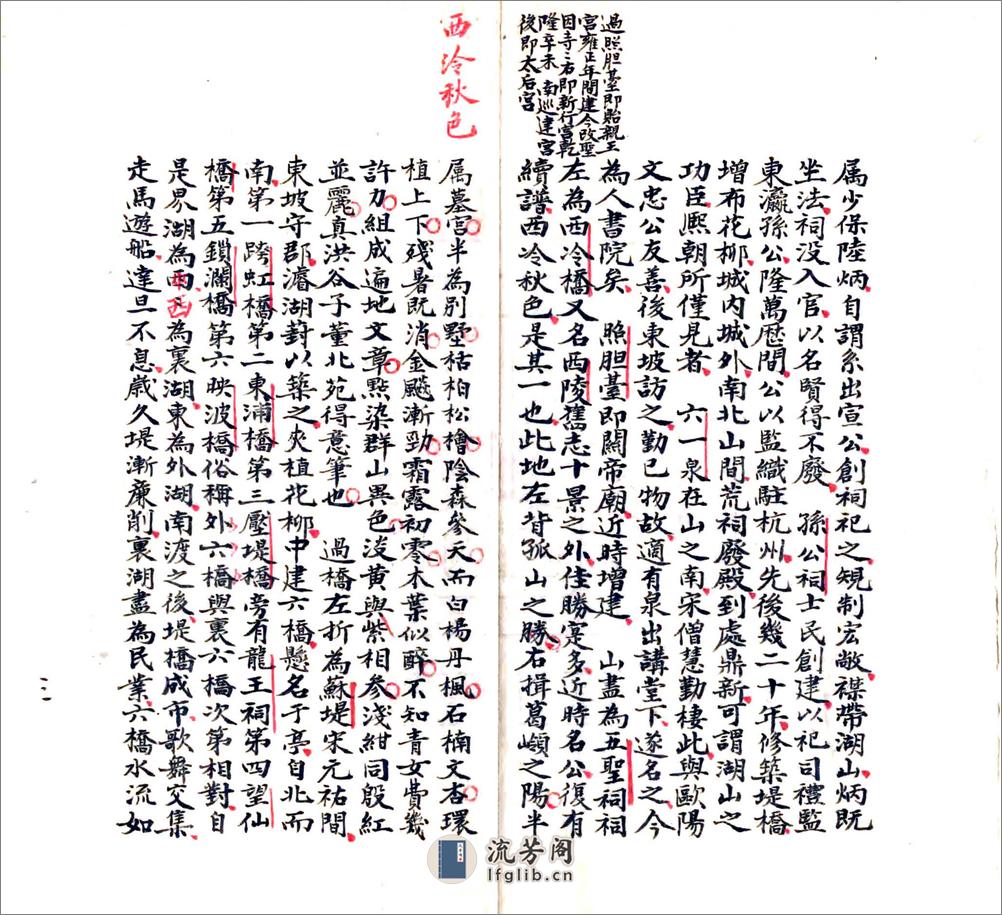 過照胆臺即貽親王
宮雍正年間建今改聖
因寺寺右即新行宮乾
隆辛未 南巡建宮
後即太后宮
属少保陸炳自謂系出宣公創祠祀之規制宏敞襟帶湖山炳既
坐法祠没入官以名賢得不廢 孫公祠士民創建以祀司禮監
東瀛孫公隆萬歷間公以監織駐杭州先後幾二十年修築堤橋
增布花柳城内城外南北山間荒祠廢殿到處鼎新可謂湖山之
功臣熈朝所僅見者 六一泉在山之南宋僧慧勤棲此與歐陽
文忠公友善後東坡訪之勤已物故適有泉出講堂下遂名之今
為人書院矣 照胆臺即關帝廟近時增建 山盡為五聖祠祠
左為西冷橋又名西陵舊志十景之外佳勝寔多近時名公復有
續譜西冷秋色是其一也此地左背孤山之勝右揖葛嶺之陽半
西泠秋色
属墓宮半為別墅枯柏松檜陰森參天而白楊丹楓石楠文杏環
植上下残暑既消金飈漸勁霜露初零木葉似醉不知青女費幾
許力組成遍地文章點染群山異色淡黄與紫相參淺紺同殷紅
並麗真洪谷子董北苑得意筆也 過橋左折為蘇堤宋元祐間
東坡守郡濬湖葑以築之夾植花柳中建六橋懸名于亭自北而
南第一跨虹橋第二東浦橋第三壓堤橋旁有龍王祠第四望仙
橋第五鎖瀾橋第六映波橋俗稱外六橋與裏六橋次第相對自
是界湖為兩西為裏湖東為外湖南渡之後堤橋成市歌舞交集
走馬遊船達旦不息歲久堤漸䕠削裏湖盡為民業六橋水流如
流芳阁
lfglib.cn